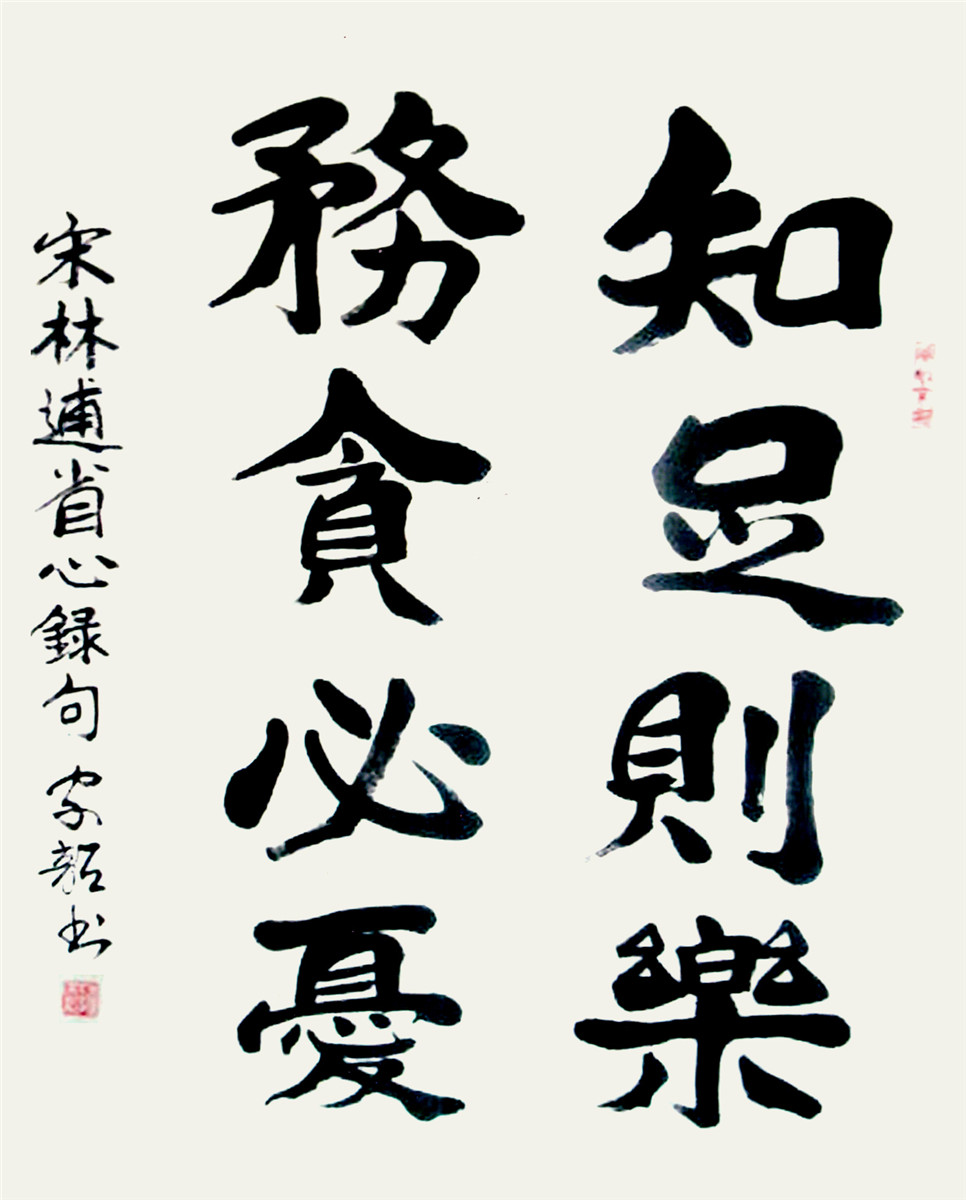 知足則樂
務貪必憂
宋林逋省心録句 家韶书